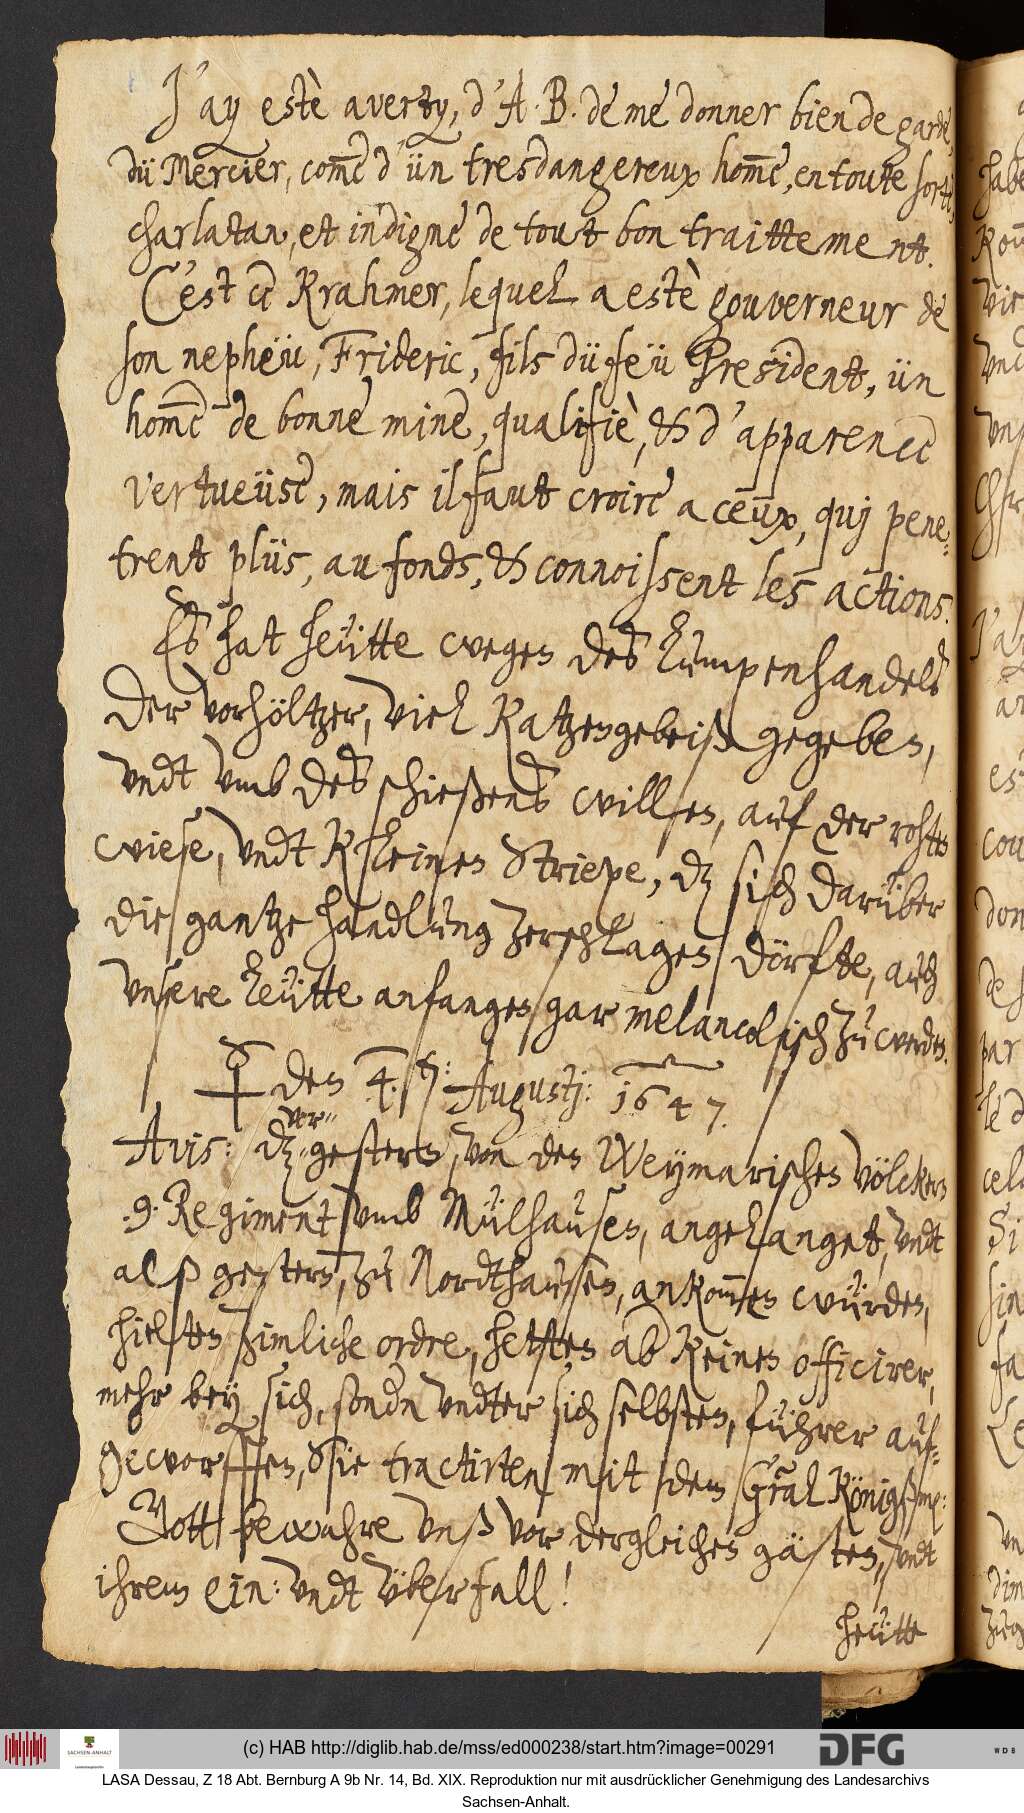 J'ay estè averty, d'A. B. de me donner bien de garde,
dü Mercier, com̅e d'ün tresdangereux hom̅e, en toute sorte,
charlatan, et indigne de tout bon traittement.
C'est ce Krahmer, lequel a estè gouverneur de
son nepheü, Frideric, fils dü feü President, ün
hom̅e de bonne mine, qualifiè, & d'apparence
vertueüse, mais il faut croire a ceüx, quj pene-
trent plüs, au fonds, & connoissent les actions.
Es hat heütte wegen des lumpenhandels
der vorhöltzer, viel Katzengebeiß gegeben,
vndt vmb des schießens willen, auf der rohten
wiese, vndt kleinen Striepe, dz sich darüber
die gantze handlung zerschlagen dörfte, auch
vnsere leütte anfangen gar melancolisch zu werden.
den 4. ten: Augustj: 1647.
Avis: dz vor-gestern, von den Weymarischen völckern
.9. Regiment vmb Mülhausen, angelanget, vndt
alß gestern, zu Nordthausen, ankom̅en würden,
hielten zimliche ordre, hetten ab keinen officirer,
mehr bey sich, sondn vndter sich selbsten, führer auf-
geworffen, Sie tractirten mit dem Gral Königßm:
Gott bewahre vnß vor dergleichen gästen, vndt
ihrem ein: vndt überfall!
heütte
(c) HAB http://diglib.hab.de/mss/ed000238/start.htm?image=00291
SACHSEN-ANHALT
DFG
WDB
LASA Dessau, Z 18 Abt. Bernburg A 9b Nr. 14, Bd. XIX. Reproduktion nur mit ausdrücklicher Genehmigung des Landesarchivs
Sachsen-Anhalt.